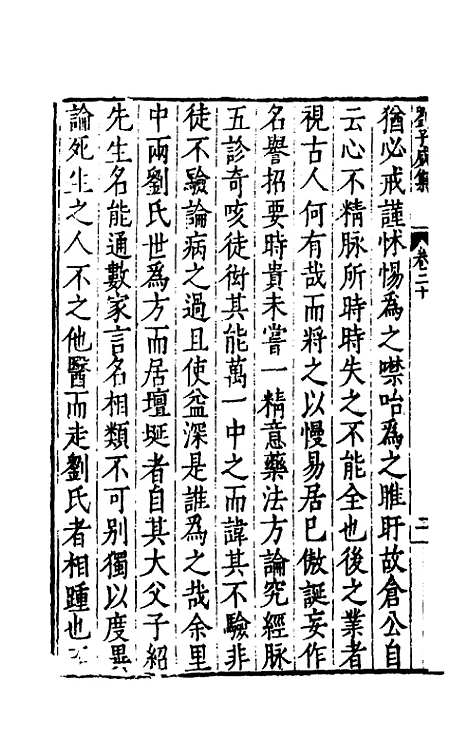 劉子威集 卷二十 二
猶必戒謹怵惕爲之噤咍爲之睢盱故倉公自
云心不精脉所時時失之不能全也後之業者
視古人何有哉而將之以慢易居已傲誕妄作
名譽招要時貴未嘗一精意藥法方論究經脉
五診奇咳徒衒其能萬一中之而諱其不驗非
徒不驗論病之過且使益深是誰爲之哉余里
中兩劉氏世爲方而居壇埏者自其大父子紹
先生名能通數家言名相類不可别獨以度異
論死生之人不之他醫而走劉氏者相踵也